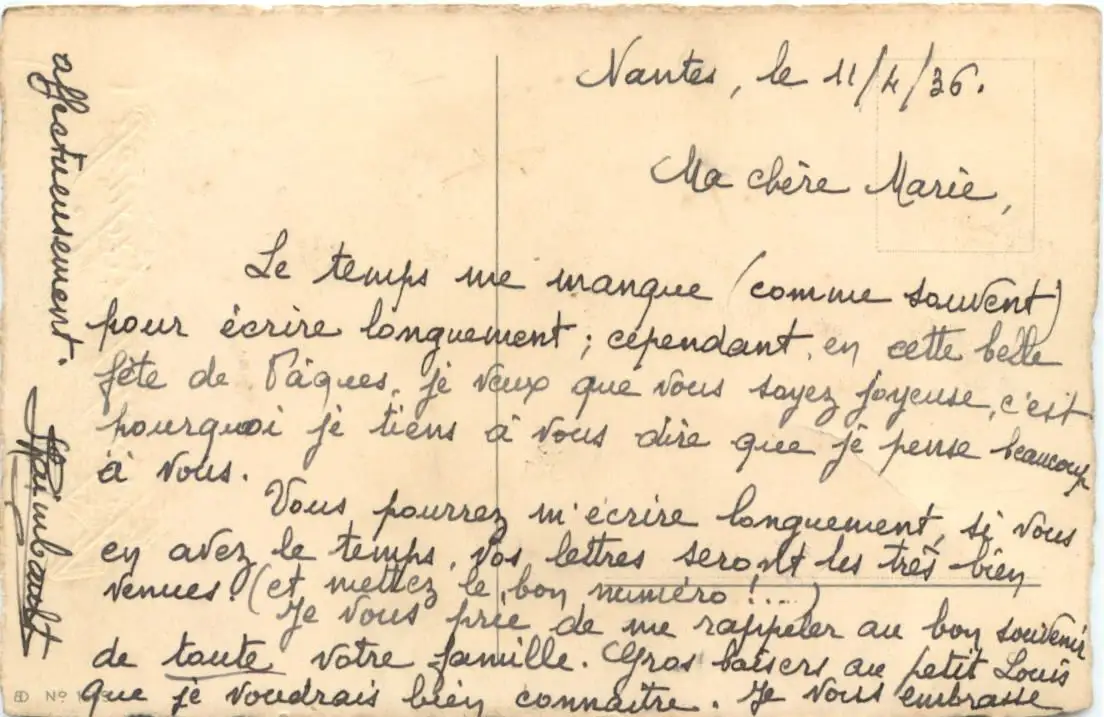 Nantes, le 11/4/36.
Ma chère Marie,
Le temps me manque (comme souvent)
pour écrire longuement ; cependant, en cette belle
fête de Pâques, je veux que vous soyez joyeuse, c'est
pourquoi je tiens à vous dire que je pense beaucoup
à vous.
Vous pourrez m'écrire longuement, si vous
en avez le temps, vos lettres seront les très bien
venues. (et mettez le bon numéro !...)
Je vous prie de me rappeler au bon souvenir
de toute votre famille. Gros baisers au petit Louis
que je voudrais bien connaître. Je vous embrasse
affectueusement.
ED Nº